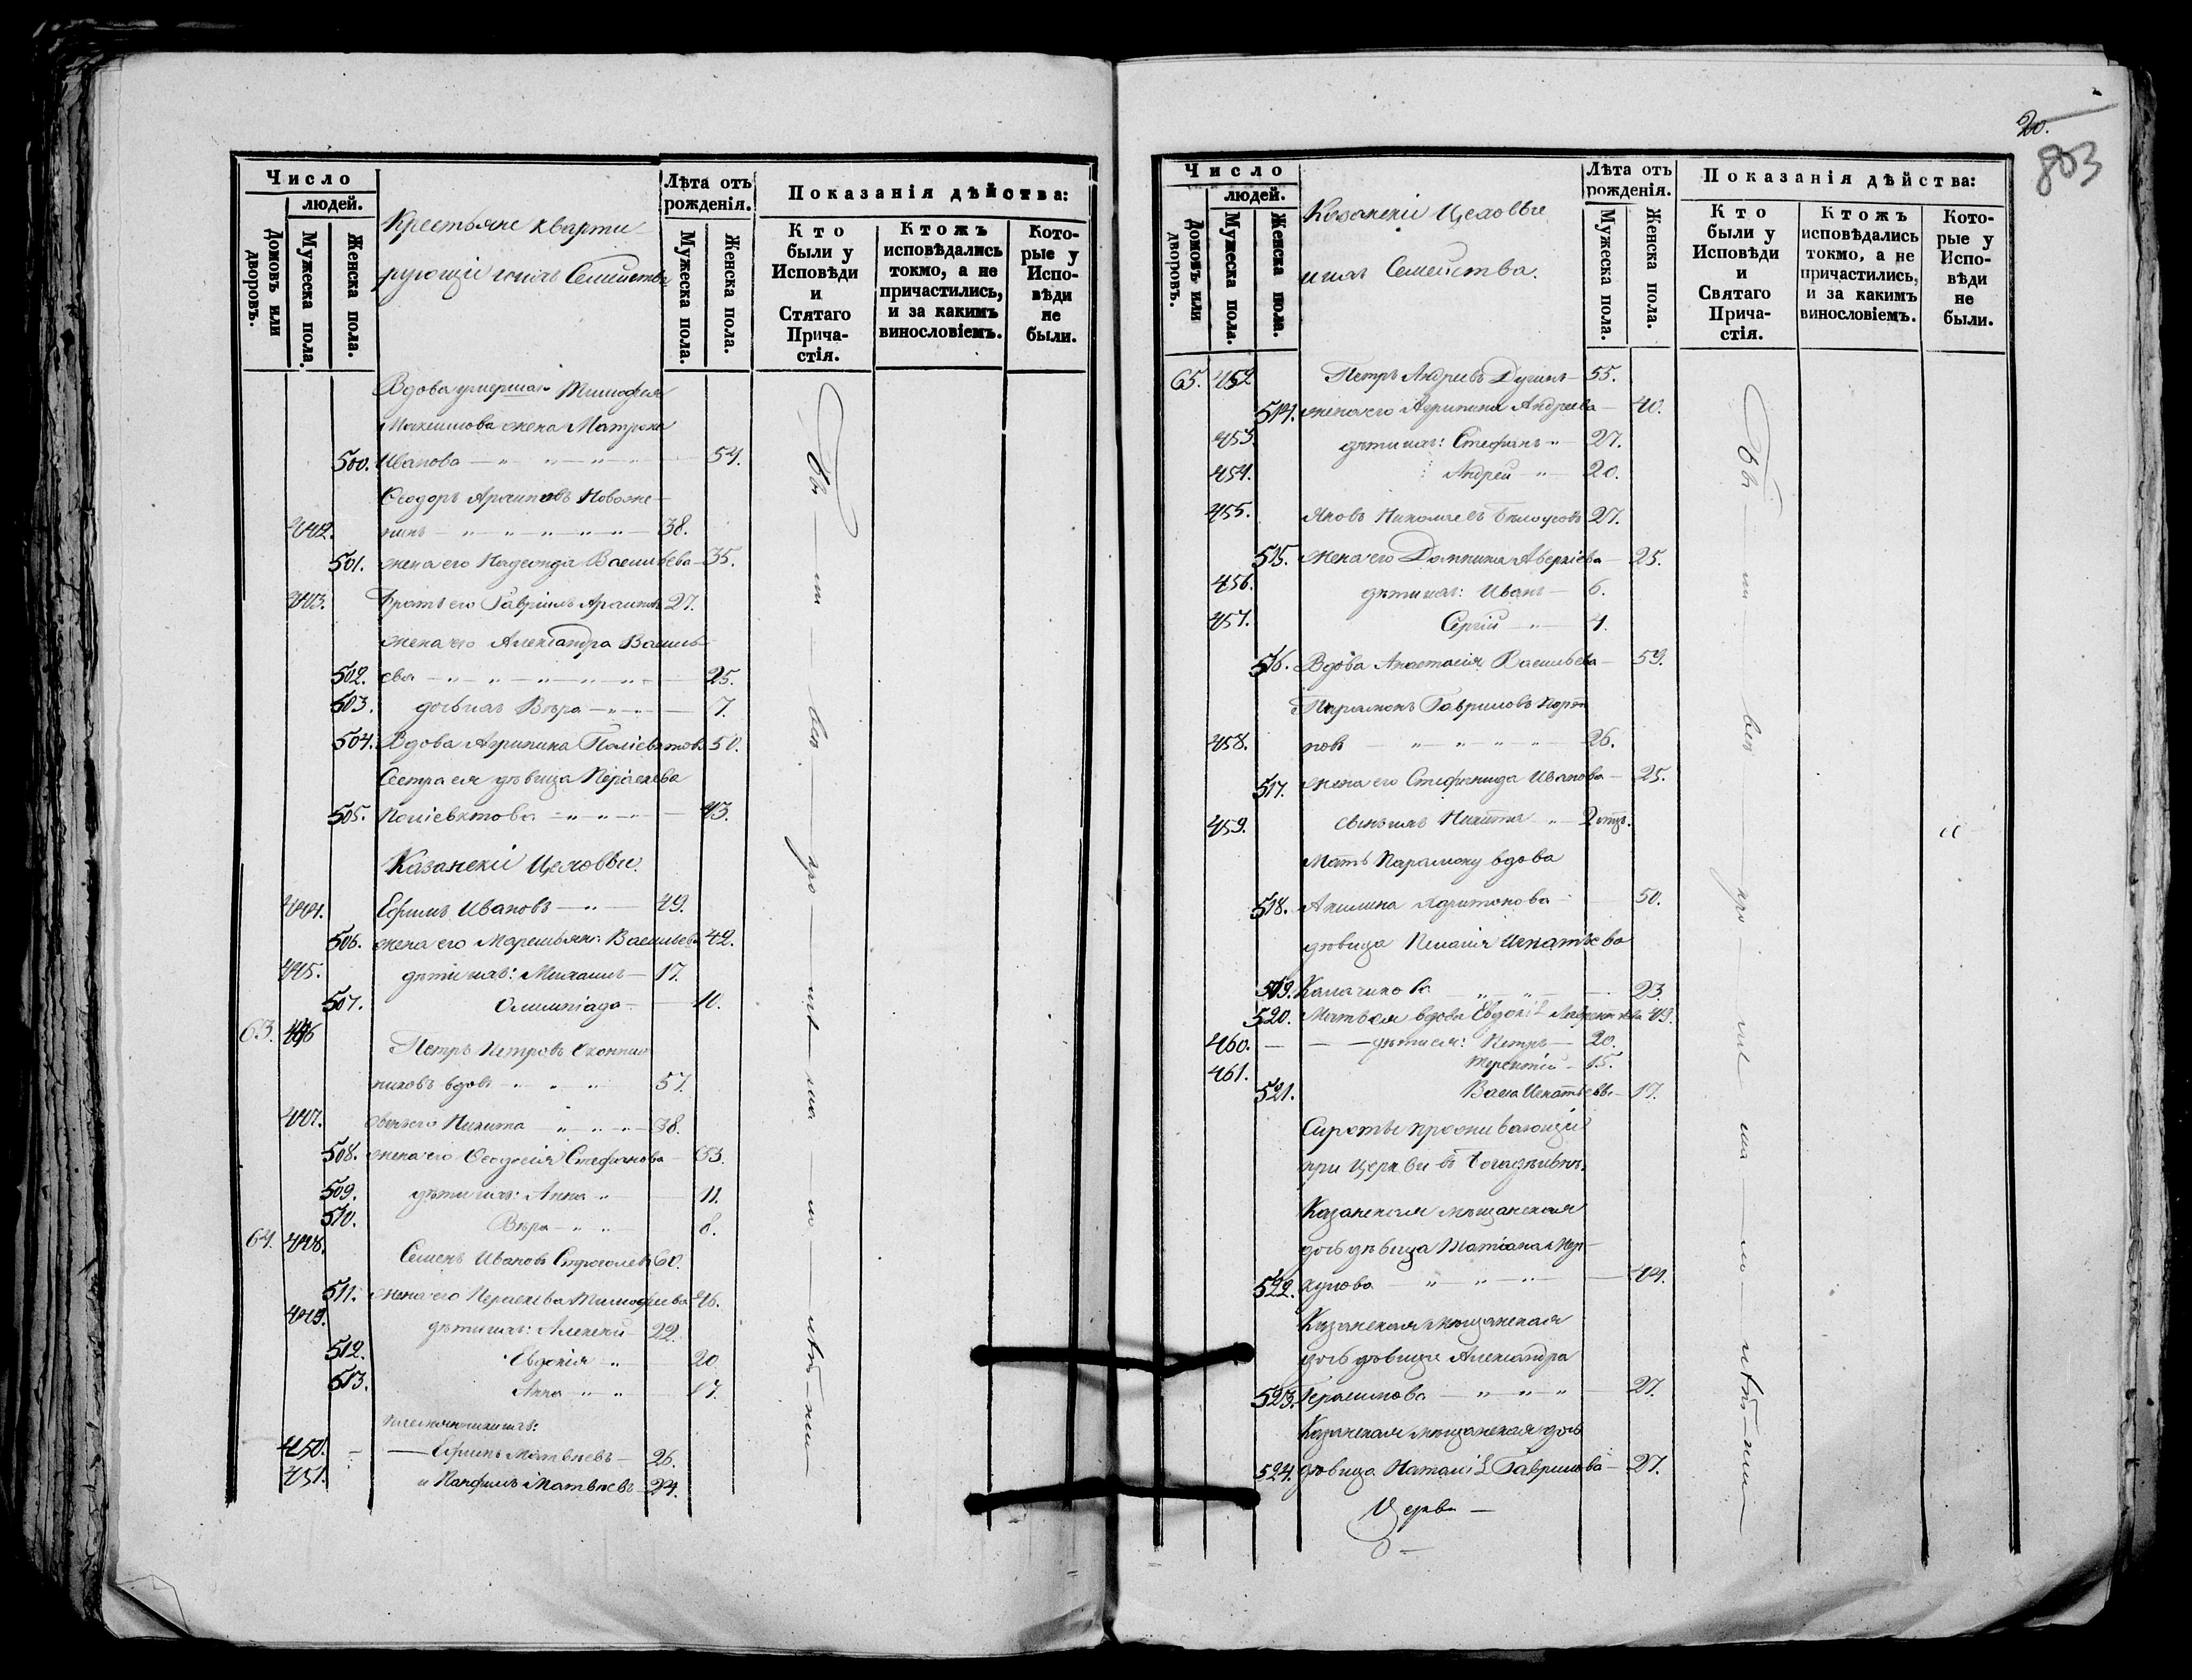 Число
людей.
Домовъ или дворовъ.
Мужеска пола.
Женска пола.
Крестьяне кварти-
рующіе и ихъ Семейства
Лѣта отъ рожденія.
Мужеска пола.
Женска пола.
Показанія дѣйства:
Кто были у Исповѣди и Стятаго Прича-стія.
Ктожъ исповѣдались токмо, а не причастились, и за какимъ винословіемъ.
Кото-рые у Испо-вѣди не были.
Вдова умершаго Тимофея
Максимова жена Матрона
500. Иванова — 54.
Ѳеодоръ Архиповъ Новоже-
442. нинъ — 38.
501. жена его Надежда Васильева — 35.
443. братъ его Гавріилъ Архиповъ 27.
жена его Александра Василь-
502. ева — 25.
503. дочь ихъ Вѣра — 7.
504. Вдова Агрипина Поліевктова 50.
Сестра ея дѣвица Параскева
505. Поліевктова — 43.
Казанскіи Цеховые.
444. Ефимъ Ивановъ — 49.
506. жена его Маремьяна Васильева 42.
445. дѣти ихъ: Михаилъ — 17.
507. Олимпіада — 10.
63. 446 Петръ Петровъ
никовъ вдовъ 57.
447. сынъ его Никита — 38.
508. жена его Ѳеодосія Стефанова — 33.
509. дѣти ихъ: Анна — 11.
510. Вѣра — 8.
64. 448. Семенъ Ивановъ 60.
511. жена его Параскева Тимофеева 46.
449. дѣти ихъ: Алексей — 22.
512. Евдокія — 20
513. Анна — 17.
племянники ихъ:
450. — Ефимъ Матвѣевъ — 26.
451. и Панфилъ Матвѣевъ — 24.
20.
803
Число
людей.
Домовъ или дворовъ.
Мужеска пола.
Женска пола.
Казанскіи Цеховые
и ихъ Семейства.
Лѣта отъ рожденія.
Мужеска пола.
Женска пола.
Показанія дѣйства:
Кто были у Исповѣди и Святаго Прича-стія.
Ктожъ исповѣдались токмо, а не причастились, и за какимъ винословіемъ.
Кото-рые у Испо-вѣди не были.
65. 452. Петръ Андреевъ — 55.
514. жена его Агрипина Андреева — 40.
453. дѣти ихъ: Стефанъ — 27.
454. Андрей — 20.
455. Яковъ Николаевъ Бѣлоусовъ 27.
515. жена его Домникія Аверкіева — 25.
456. дѣти ихъ: Иванъ — 6.
457. Сергій — 4.
516. Вдова Анастасія Васильева — 59.
Парамонъ Гавриловъ Порт-
458. новъ — 26.
517. жена его Стефанида Иванова — 25.
459. сынъ ихъ Никита — 2
Мать Парамону вдова
518. Акилина Харитонова — 50.
дѣвица Пелагія Игнатьева
519. Калачикова — 23.
520. Мать ея вдова Евдокія 49.
460. — дѣти ея: Петръ — 20.
461. Терентій — 15.
521. Васса Игнатьевы — 17.
Сироты проживающіе
при Церкви въ богадѣльнѣ.
Казанская мѣщанская
дочь дѣвица Татіана Пер-
522. хурова — 44.
Казанская мѣщанская
дочь дѣвица Александра
523. Герасимова — 27.
Казанская мѣщанская дочь
524. дѣвица Наталія Гаврилова — 27.
Церкви —